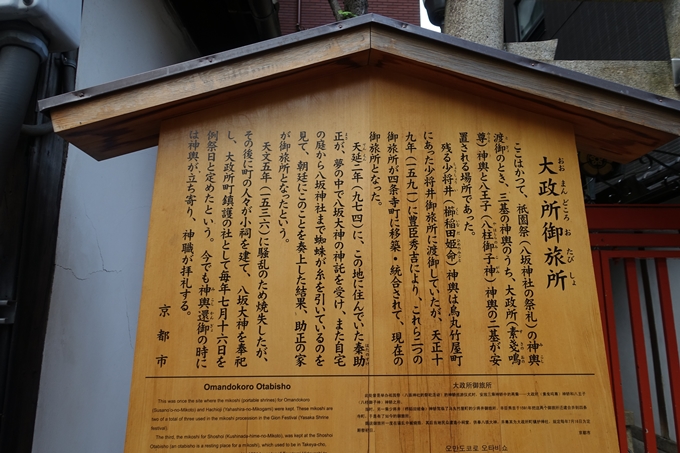 大政所御旅所
おおまんどころおたびしょ
ここはかつて、祇園祭（八坂神社の祭礼）の神輿
渡御のとき、三基の神輿のうち、大政所（素戔嗚
尊）神輿と八王子（八柱御子神）神輿の二基が安
置される場所であった。
残る少将井（櫛稲田姫命）神輿は烏丸竹屋町
にあった少将井御旅所に渡御していたが、天正十
九年（一五九一）に豊臣秀吉により、これら二つの
御旅所が四条寺町に移築・統合されて、現在の
御旅所となった。
天延二年（九七四）に、この地に住んでいた秦助
正が、夢の中で八坂大神の神託を受け、また自宅
の庭から八坂神社まで蜘蛛が糸を引いているのを
見て、朝廷にこのことを奏上した結果、助正の家
が御旅所となったという。
天文五年（一五三六）に騒乱のため焼失したが、
その後に町の人々が小祠を建て、八坂大神を奉祀
し、大政所町鎮護の社として毎年七月十六日を
例祭日と定めたという。今でも神輿還御の時に
は神輿が立ち寄り、神職が拝礼する。
京都市
Omandokoro Otabisho
This was once the site where the mikoshi (portable shrines) for Omandokoro
(Susano'o-no-Mikoto) and Hachioji (Yahashira-no-Mikogami) were kept. These mikoshi are
two of a total of three used in the mikoshi procession in the Gion Festival (Yasaka Shrine
festival).
The third, the mikoshi for Shoshoi (Kushinada-hime-no-Mikoto), was kept at the Shoshoi
Otabisho (an otabisho is a resting place for a mikoshi), which used to be in Takeya-cho,
大政所御旅所
오만도코로 오타비쇼